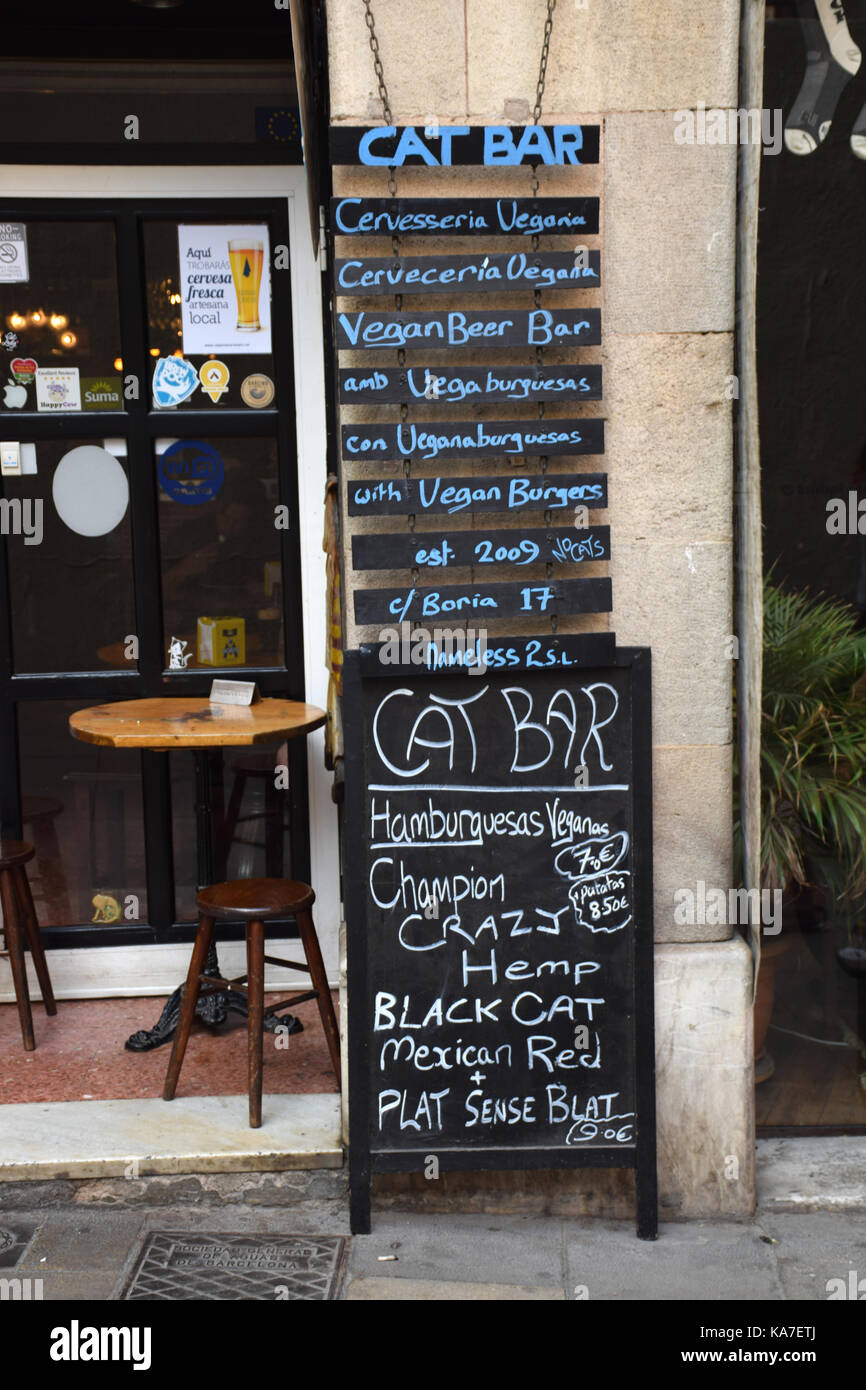 CAT BAR
Cervesseria Vegana
Cervecería Vegana
Vegan Beer Bar
amb Vegaburguesas
con Veganaburguesas
with Vegan Burgers
est. 2009 NO CATS
c/ Boria 17
Nameless 2 S.L.
CAT BAR
Hamburguesas Veganas
7.0€
Champion
patatas
8.50€
CRAZY
Hemp
BLACK CAT
Mexican Red
+
PLAT SENSE BLAT
9.0€
NO-
SMOKING
Aquí
TROBARÀS
cervesa
fresca
artesana
local
HappyCow
Suma
WiFi
SOCIEDAD GENERAL
DE AGUAS
DE BARCELONA
alamy
KA7ETJ
www.alamy.com